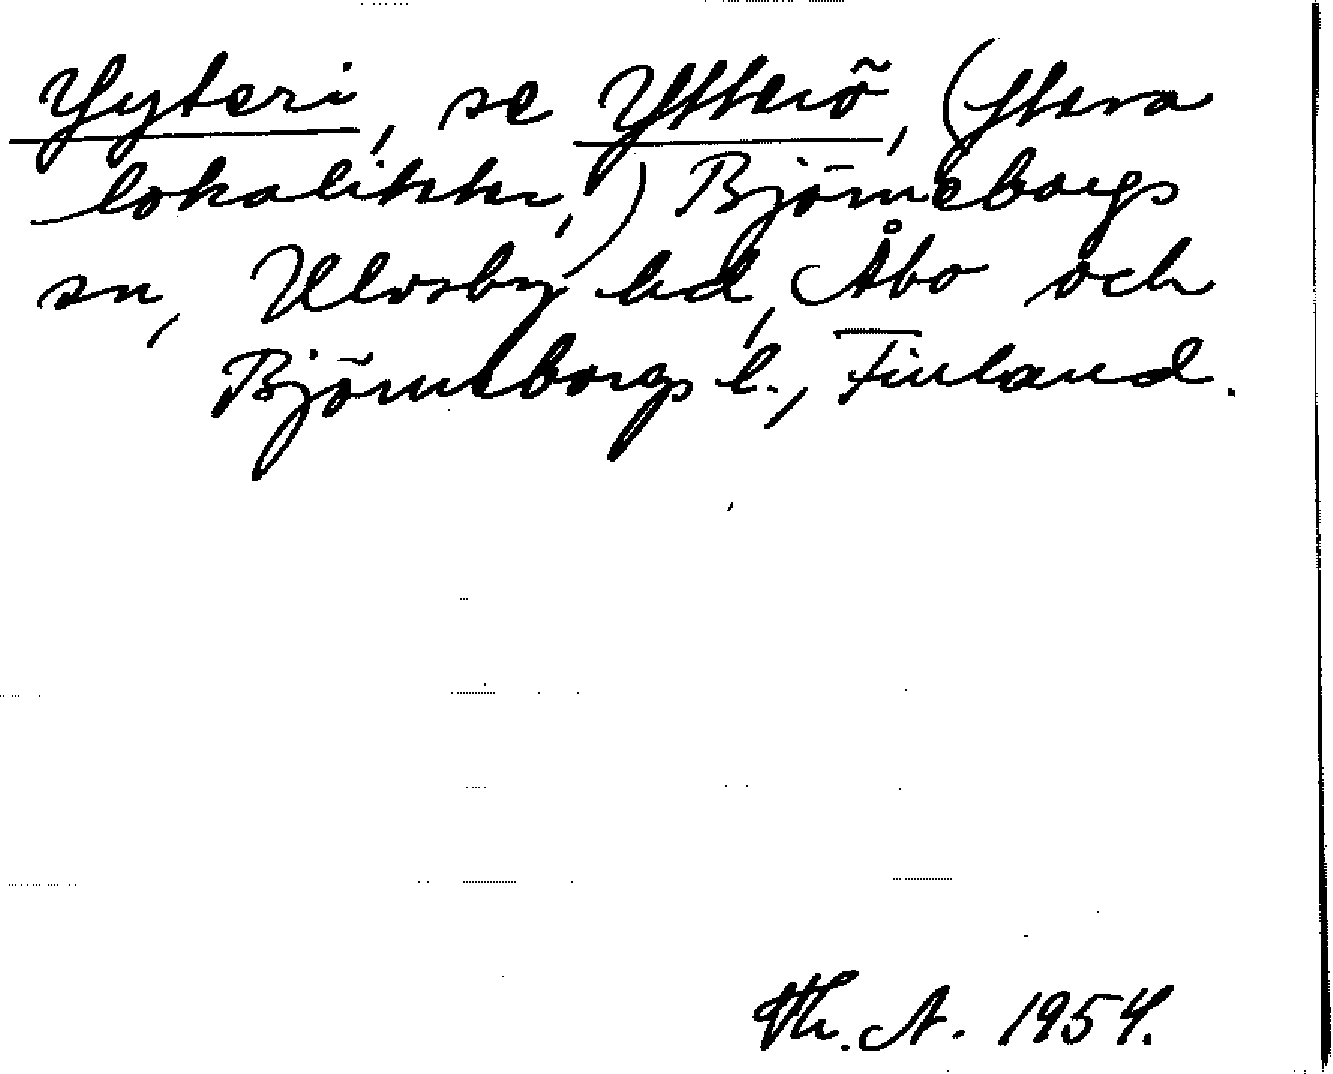 Yyteri, se Ytterö, (flera
lokaliteter,) Björneborgs
sn, Ulvsby hd, Åbo och
Björneborgs l., Finland.
Th. A. 1954.